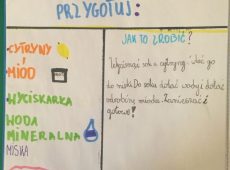 PRZYGOTUJ:
CYTRYNY
MIÓD
WYCISKARKA
WODA
MINERALNA
MISKA
JAK TO ZROBIĆ?
Wyciśnąć sok z cytryny i wlać go
do miski. Do soku dodać wody i dodać
odrobinę miodu. Zamieszać i
gotowe!